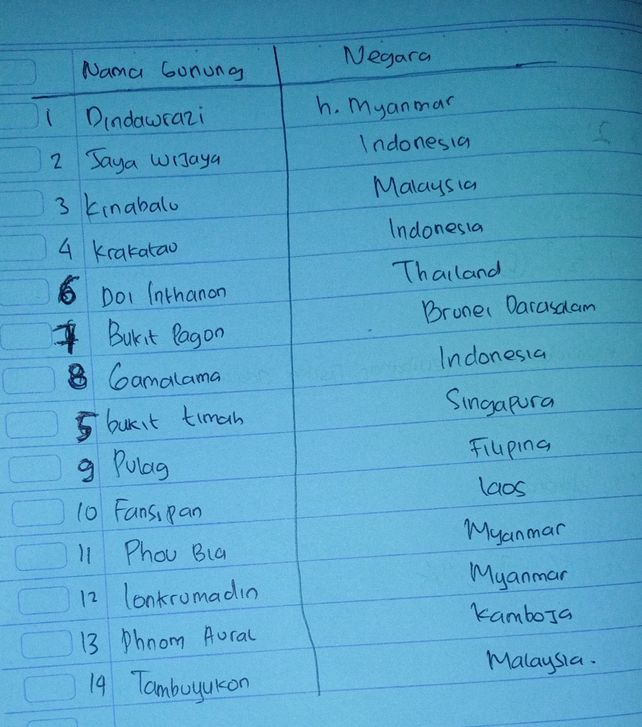 Nama Gunung Negara
1 Dindawrazi h. Myanmar
2 Jaya Wijaya Indonesia
3 Kinabalu Malaysia
4 Krakatau Indonesia
6 Doi Inthanon Thailand
7 Bukit Pagon Brunei Darasalam
8 Gamalama Indonesia
5 bukit timah Singapura
9 Pulag Filipina
10 Fansipan laos
11 Phou Bia Myanmar
12 lonkrumadin Myanmar
13 Phnom Aural Kamboja
14 Tambuyukon Malaysia.